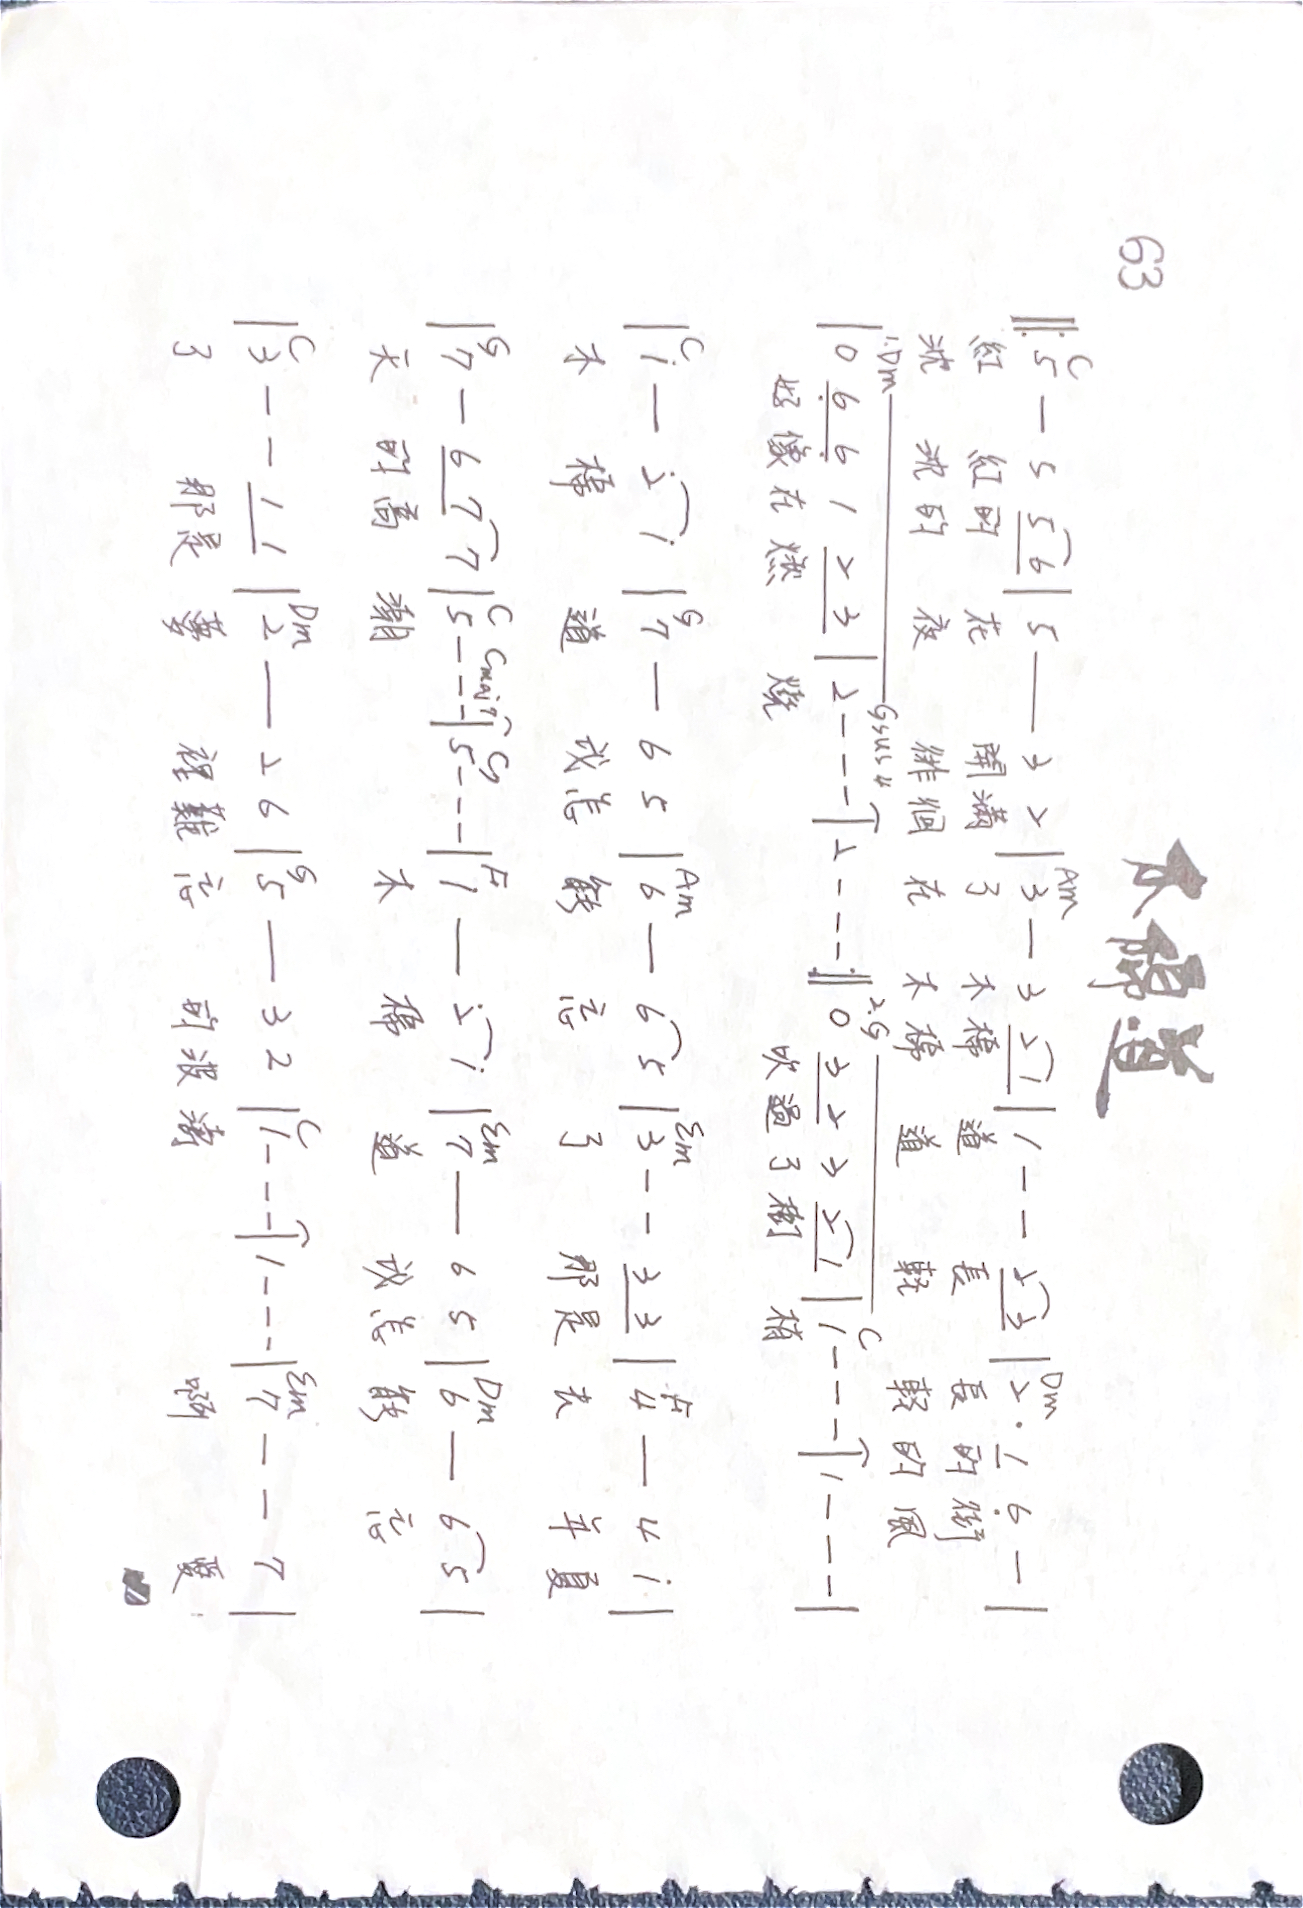 63
木棉道
C Am Dm
‖: 5 — 5 5 6 | 5 — 3 2 | 3 — 3 2 1 | 1 - - 2 3 | 2 · 1 6̣ — |
紅 紅的 在 開滿 了 木棉 道 長 長的街
沈 沈的 夜 徘徊 在 木棉 道 輕 輕的風
1.Dm Gsus4 2.G C
| 0 6̣ 6̣ 1 2 3 | 2 - - - | 2 - - - :‖ 0 3 2 3 2 1 | 1 - - - | 1 - - - |
好像在燃 燒 吹過了樹 梢
C G Am Em F
| i — 2̇ i | 7 — 6 5 | 6 — 6 5 | 3 - - 3 3 | 4 — 4 i |
木 棉 道 我怎 能 忘 了 那是 去 年夏
G C Cmaj7 C7 F Em Dm
| 7 — 6 7 7 | 5 - - - | 5 - - - | 1 — 2̇ i | 7 — 6 5 | 6 — 6 5 |
天 的高 潮 木 棉 道 我怎 能 忘
C Dm G C Em
| 3 - - 1 1 | 2 — 2 6 | 5 — 3 2 | 1 - - - | 1 - - - | 7 - - 7 |
了 那是 夢 裡難 忘 的波 濤 啊 愛